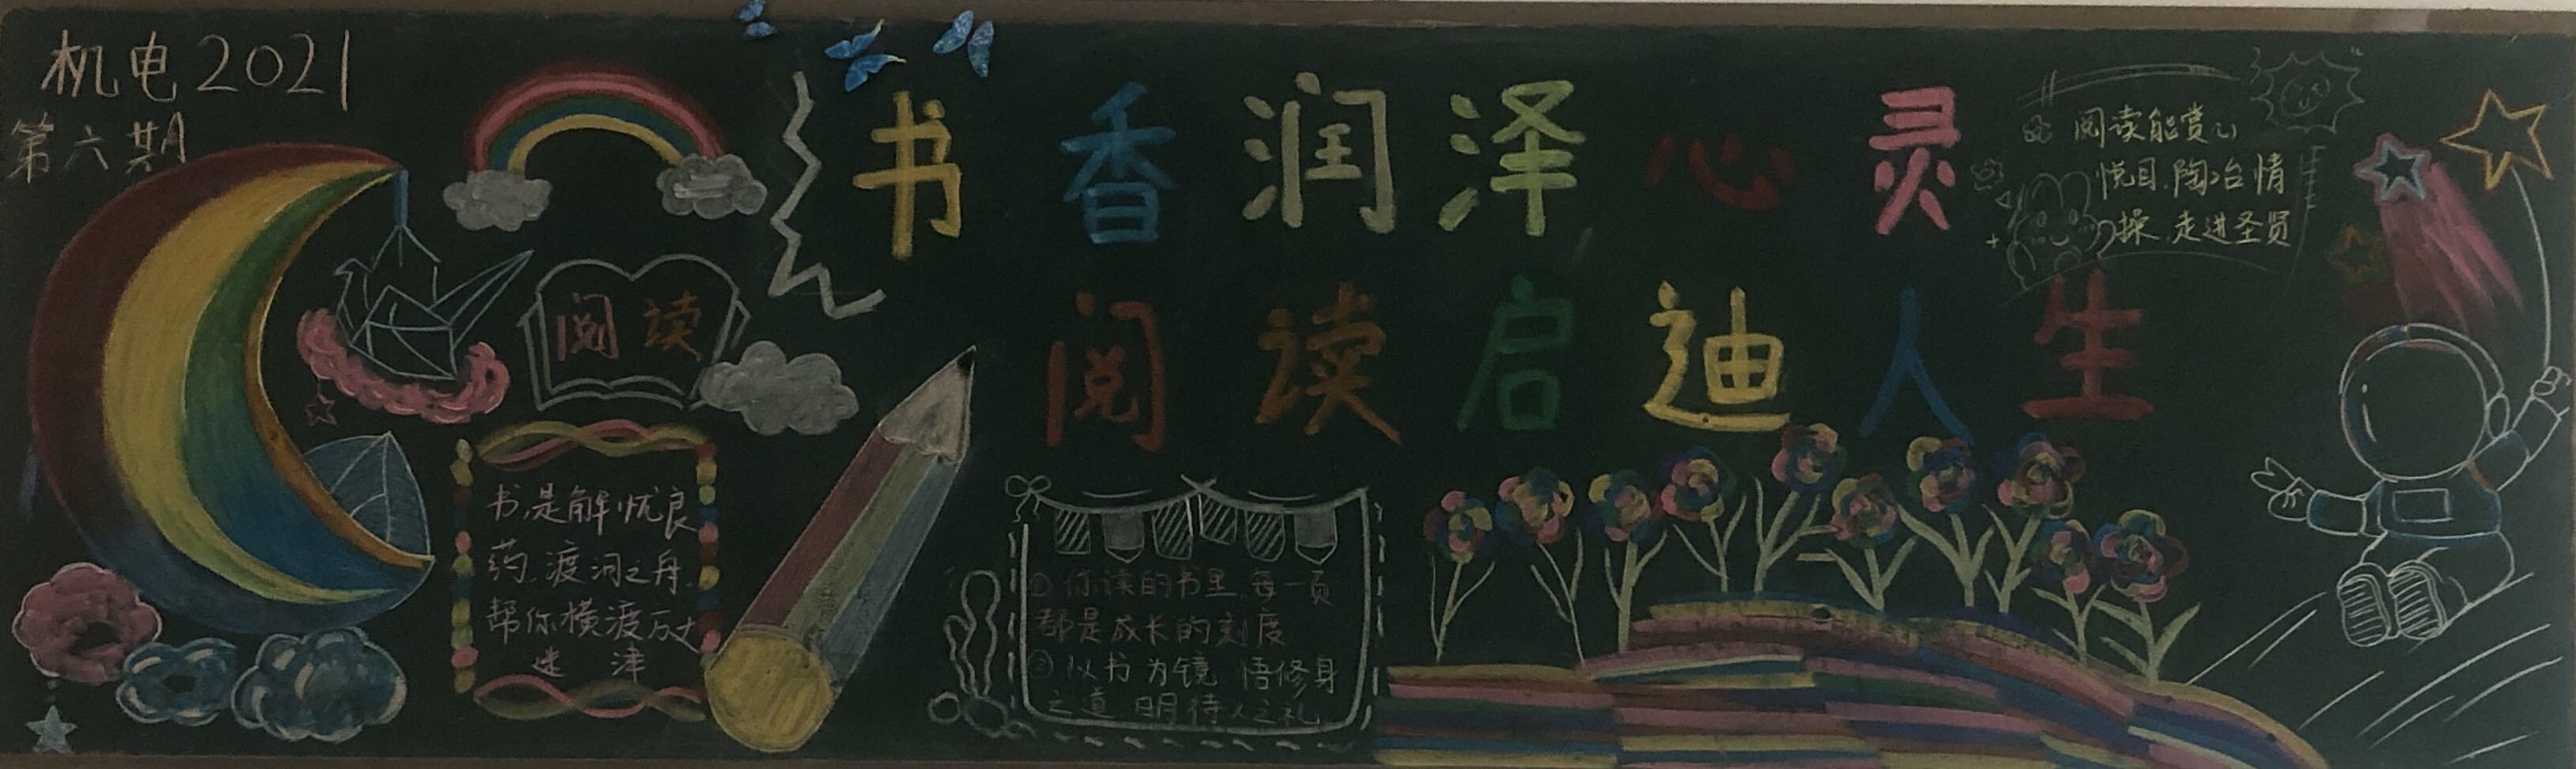 机电2021
第六期
书香润泽心灵
阅读启迪人生
阅读能赏心
悦目,陶冶情
操,走进圣贤
阅读
书,是解忧良
药,渡河之舟,
帮你横渡万丈
迷津
①你读的书里,每一页
都是成长的刻度
②以书为镜 悟修身
之道,明待人之礼